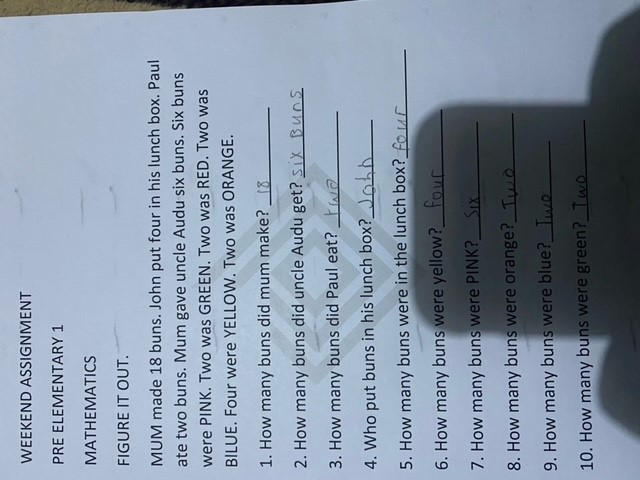 WEEKEND ASSIGNMENT
PRE ELEMENTARY 1
MATHEMATICS
FIGURE IT OUT.
MUM made 18 buns. John put four in his lunch box. Paul
ate two buns. Mum gave uncle Audu six buns. Six buns
were PINK. Two was GREEN. Two was RED. Two was
BILUE. Four were YELLOW. Two was ORANGE.
1. How many buns did mum make? 18
2. How many buns did uncle Audu get? six Buns
3. How many buns did Paul eat? two
4. Who put buns in his lunch box? John
5. How many buns were in the lunch box? four
6. How many buns were yellow? four
7. How many buns were PINK? Six
8. How many buns were orange? Two
9. How many buns were blue? Two
10. How many buns were green? Two